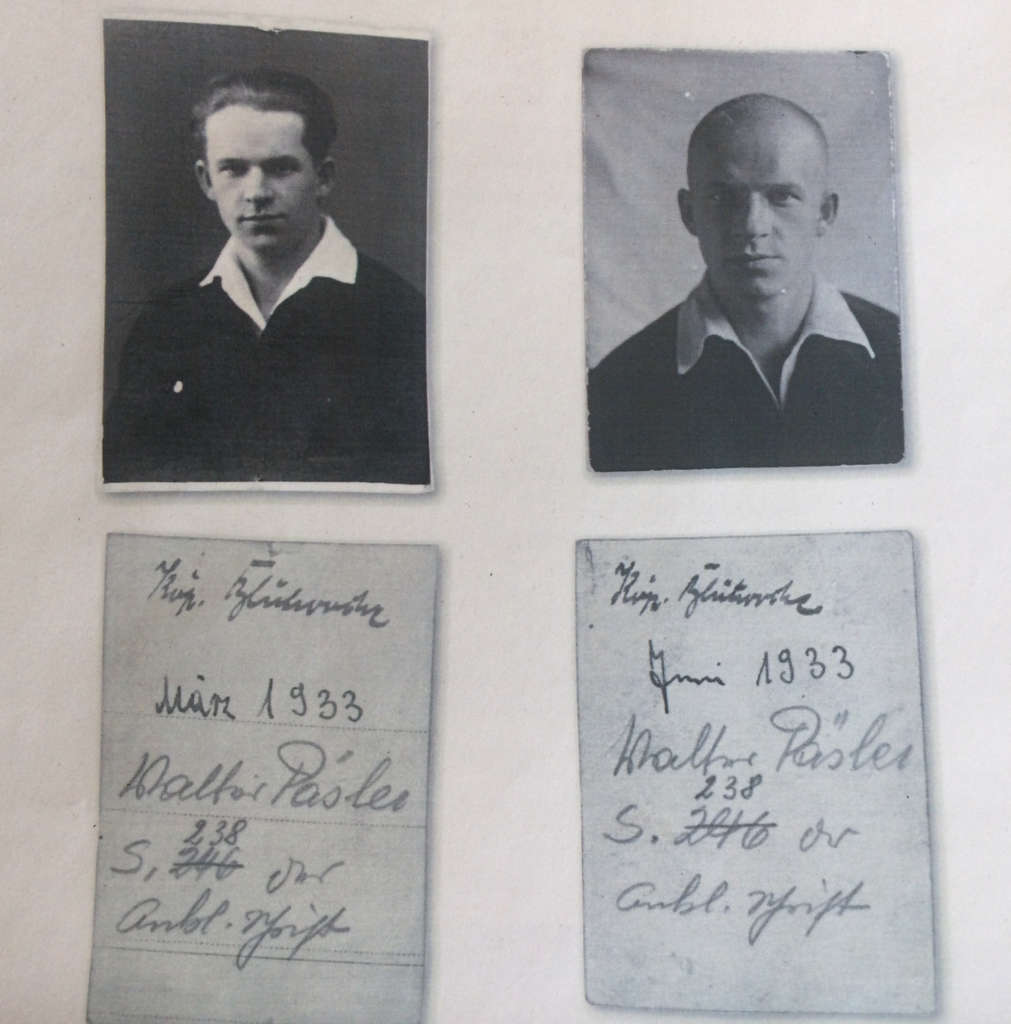 Kap.
März 1933
Walter Päsler
238
S. 246 der
Ankl. Schrift
Kap.
Juni 1933
Walter Päsler
238
S. 246 der
Ankl. Schrift